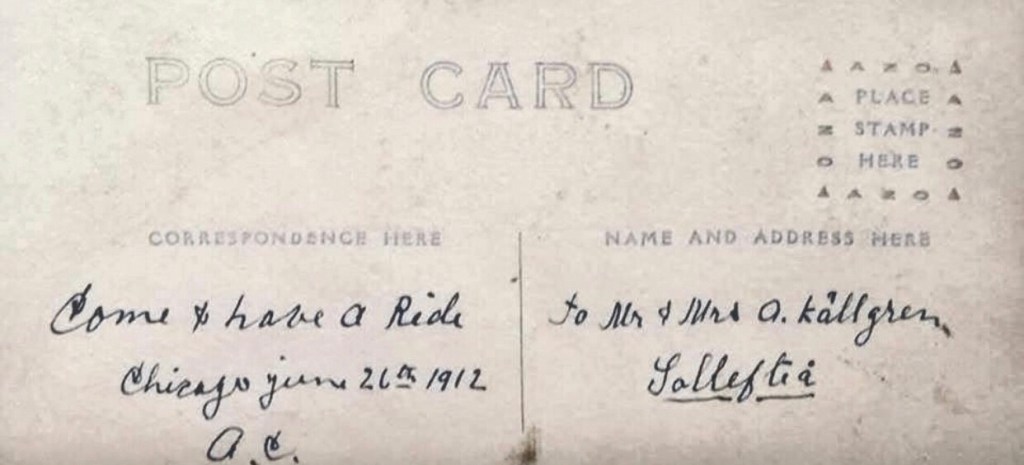 POST CARD
A A Z O A
A PLACE A
Z STAMP Z
O HERE O
A A Z O A
CORRESPONDENCE HERE
NAME AND ADDRESS HERE
Come & have a Ride
Chicago june 26th 1912
A.C.
to Mr & Mrs A. Källgren,
Solleftiå